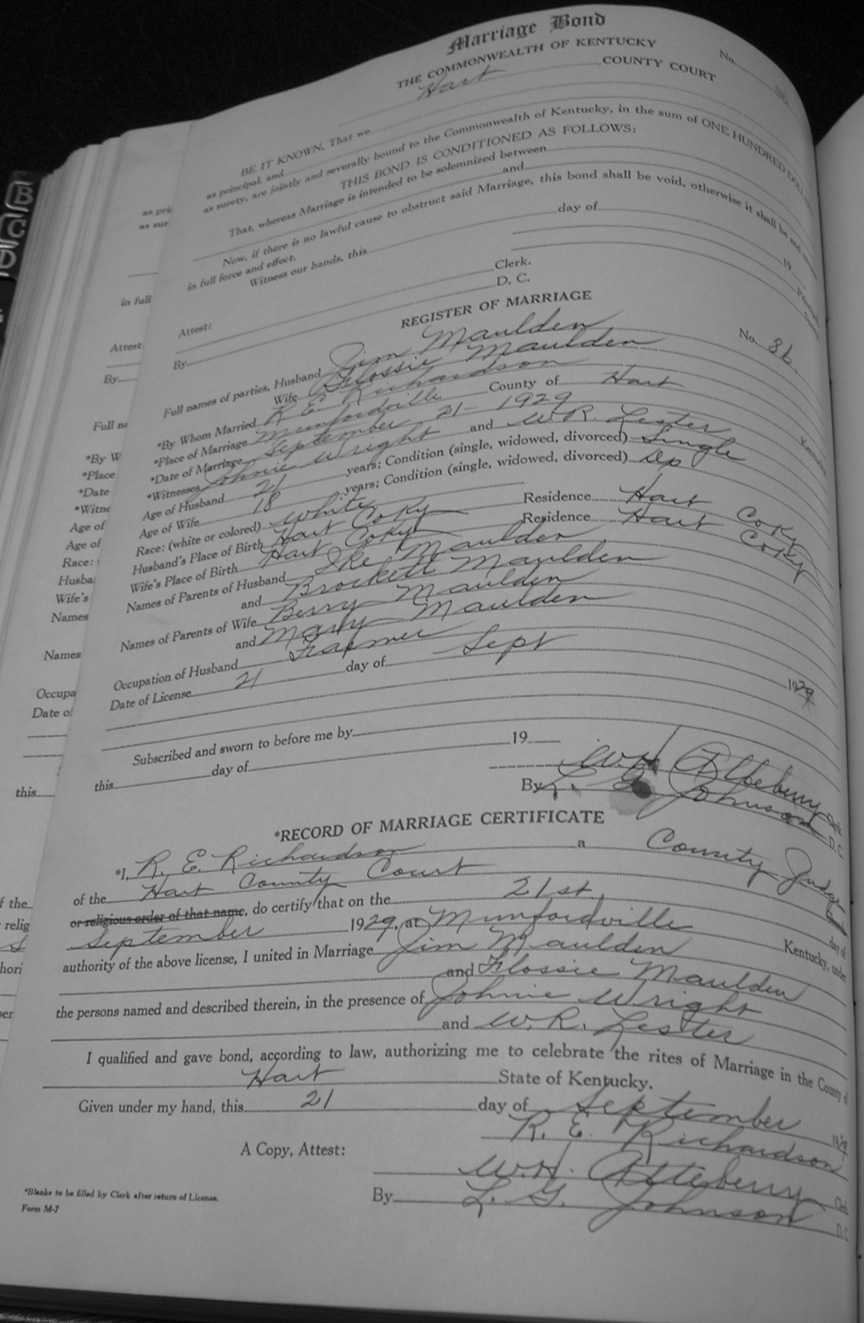 Marriage Bond
THE COMMONWEALTH OF KENTUCKY
No.
Hart COUNTY COURT
BE IT KNOWN, That we
as principal, and
as surety, are jointly and severally bound to the Commonwealth of Kentucky, in the sum of ONE HUNDRED
THIS BOND IS CONDITIONED AS FOLLOWS:
That, whereas Marriage is intended to be solemnized between
and
Now, if there is no lawful cause to obstruct said Marriage, this bond shall be void, otherwise it shall be and
in full force and effect.
Witness our hands, this day of 19
Clerk.
Attest:
D. C.
By
REGISTER OF MARRIAGE
No. 86
Full names of parties, Husband Jim Maulden
Wife Flossie Maulden
*By Whom Married R. E. Richardson
*Place of Marriage Munfordville County of Hart Kentucky
*Date of Marriage September 21- 1929
*Witnesses Johnie Wright and W. R. Lester
Age of Husband 21 years; Condition (single, widowed, divorced) Single
Age of Wife 18 years; Condition (single, widowed, divorced) Do
Race: (white or colored) White
Husband's Place of Birth Hart Co Ky Residence Hart Co Ky
Wife's Place of Birth Hart Co Ky Residence Hart Co Ky
Names of Parents of Husband Ike Maulden
and Brockett Maulden
Names of Parents of Wife Berry Maulden
and Mary Maulden
Occupation of Husband Farmer
Date of License 21 day of Sept 1929
Subscribed and sworn to before me by
this day of 19
W. H. Atteberry Clerk
By L. G. Johnson D. C.
*RECORD OF MARRIAGE CERTIFICATE
*I, R. E. Richardson a County Judge
of the Hart County Court
or religious order of that name, do certify that on the 21st, day of
September 1929, at Munfordville Kentucky, under
authority of the above license, I united in Marriage Jim Maulden
and Flossie Maulden
the persons named and described therein, in the presence of Johnie Wright
and W. R. Lester
I qualified and gave bond, according to law, authorizing me to celebrate the rites of Marriage in the County of
Hart State of Kentucky.
Given under my hand, this 21 day of September 1929
R. E. Richardson
A Copy, Attest:
W. H. Atteberry Clerk
By L. G. Johnson D. C.
*Blanks to be filled by Clerk after return of License.
Form M-7